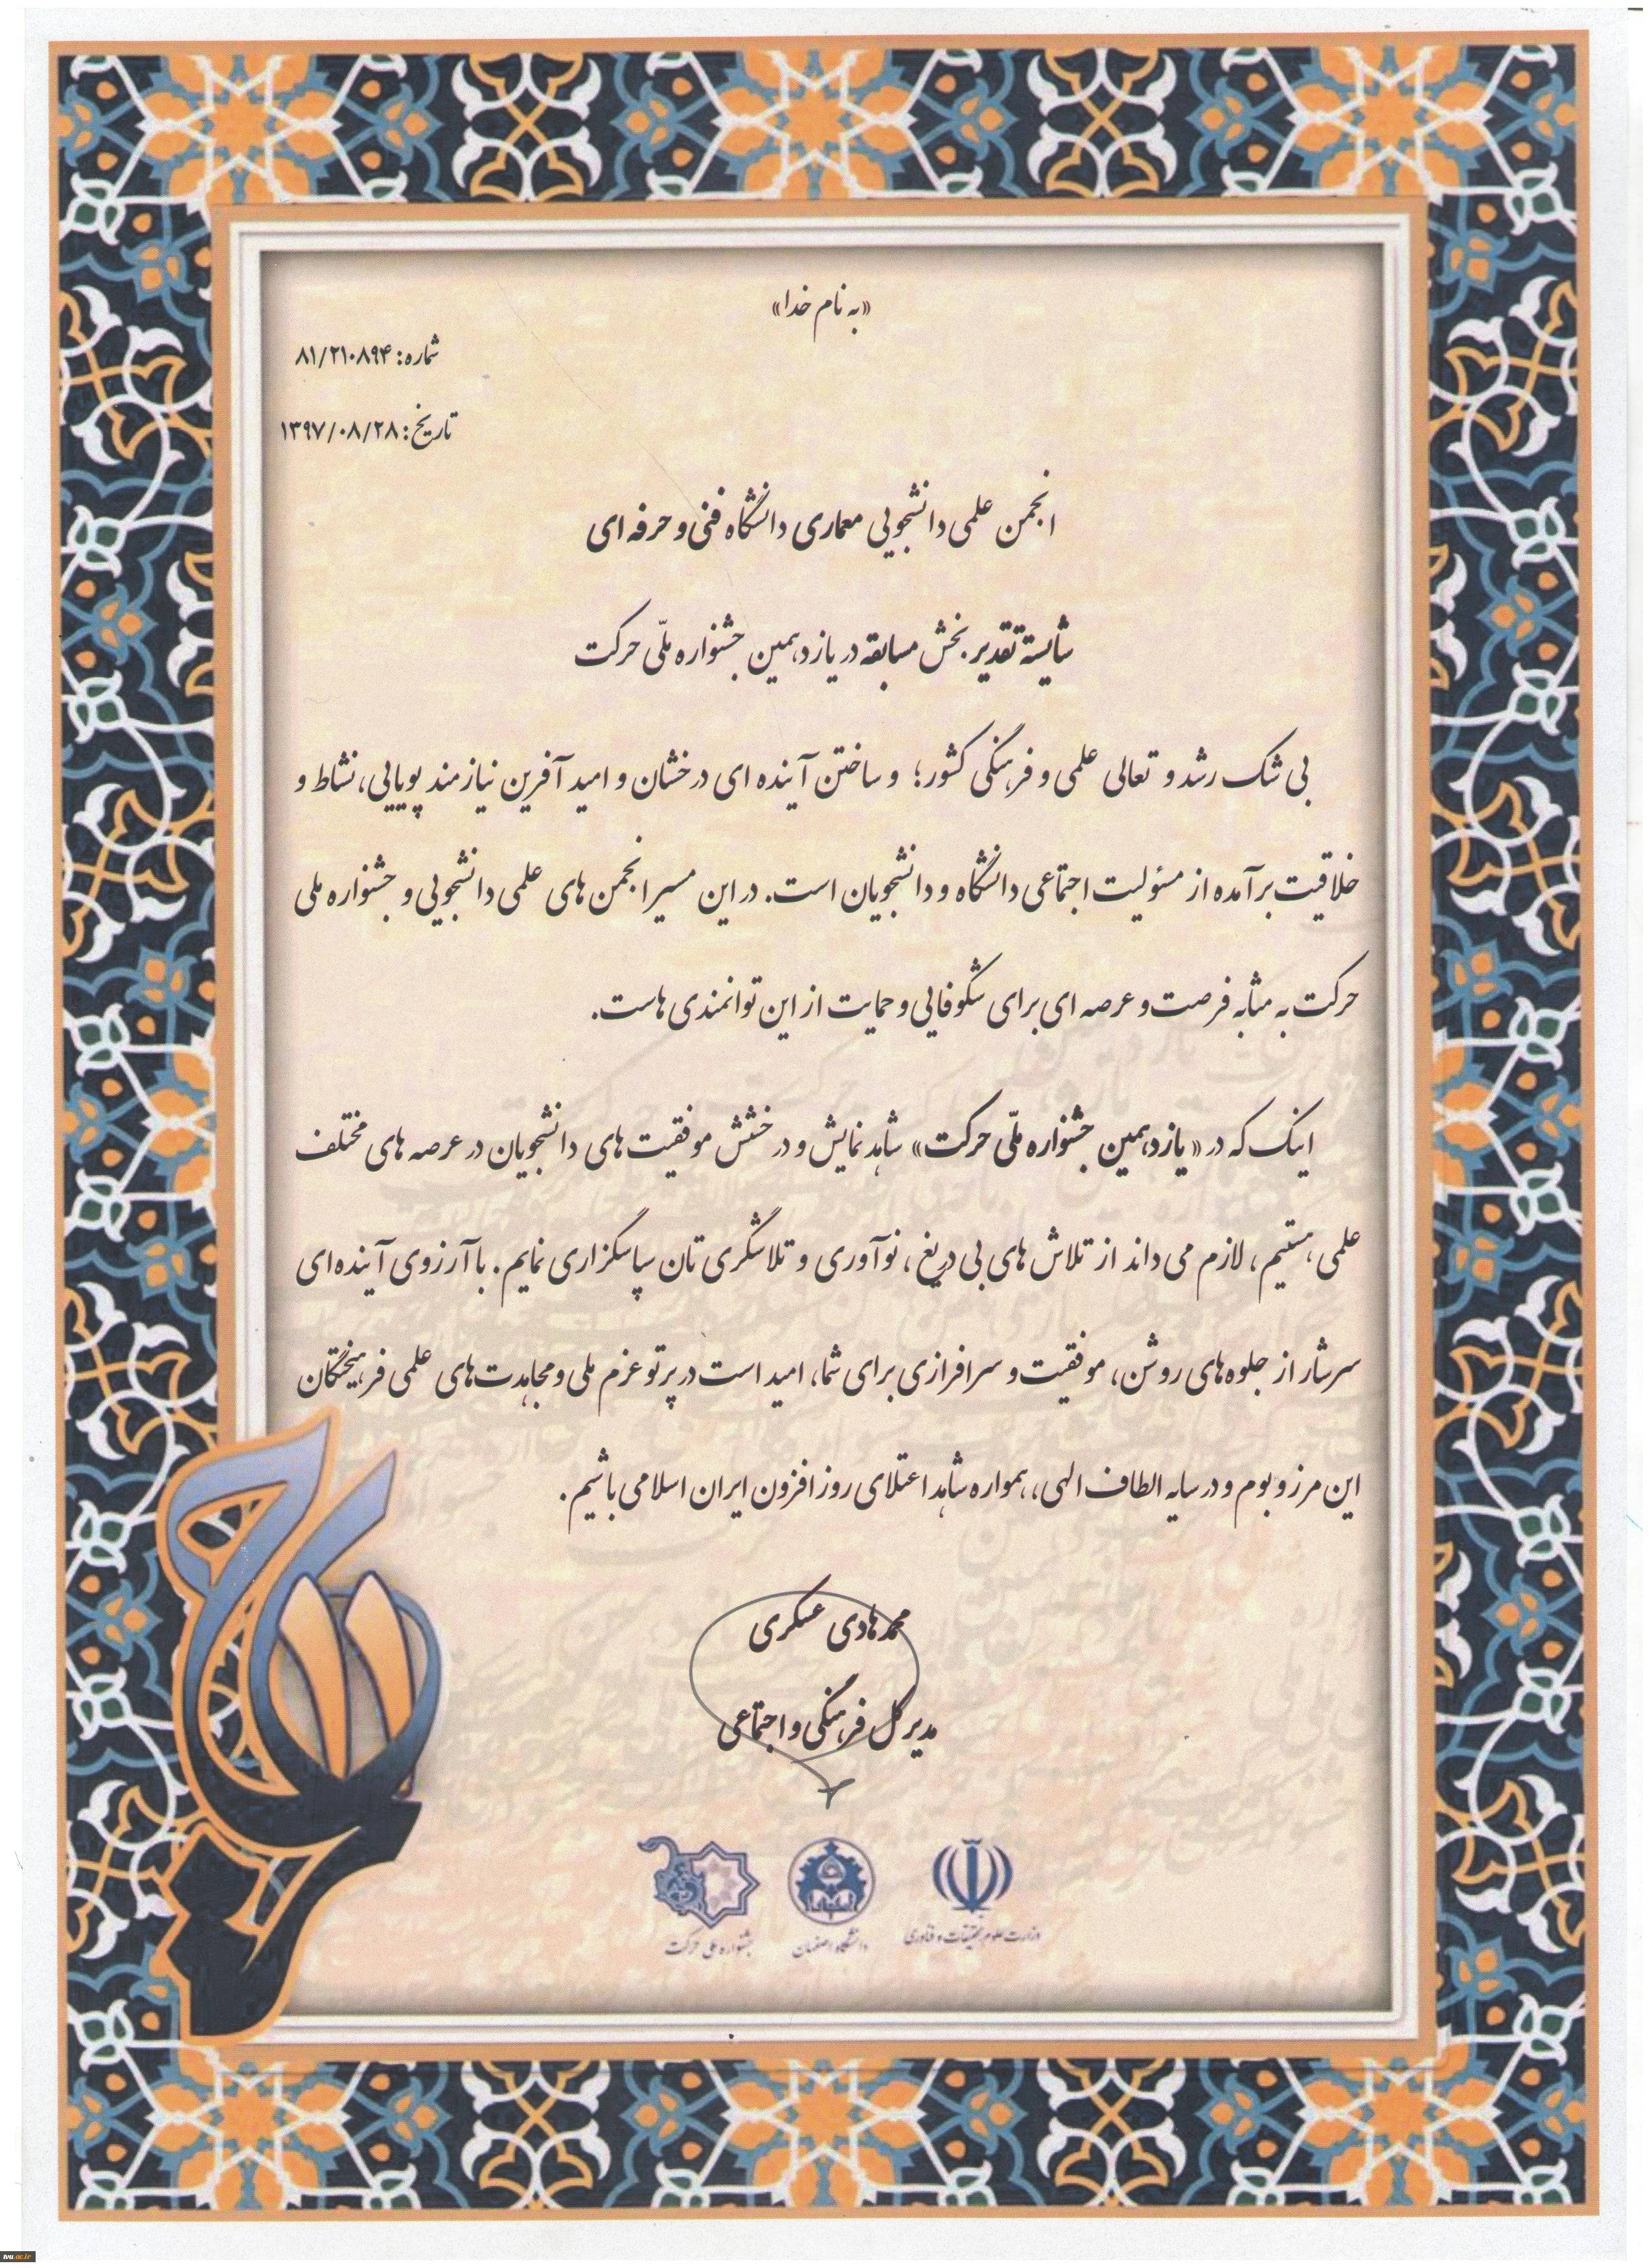 «به نام خدا»
شماره: ۸۱/۲۱۰۸۹۴
تاریخ: ۱۳۹۷/۰۸/۲۸
انجمن علمی دانشجویی معماری دانشگاه فنی و حرفه ای
شایسته تقدیر بخش مسابقه در یازدهمین جشنواره ملّی حرکت
بی شک رشد و تعالی علمی و فرهنگی کشور؛ و ساختن آینده ای درخشان و امید آفرین نیازمند پویایی، نشاط و
خلاقیت برآمده از مسئولیت اجتماعی دانشگاه و دانشجویان است. در این مسیر انجمن های علمی دانشجویی و جشنواره ملی
حرکت به مثابه فرصت و عرصه ای برای شکوفایی و حمایت از این توانمندی هاست.
اینک که در «یازدهمین جشنواره ملّی حرکت» شاهد نمایش و درخشش موفقیت های دانشجویان در عرصه های مختلف
علمی هستیم، لازم می داند از تلاش های بی دریغ، نوآوری و تلاشگری تان سپاسگزاری نمایم. با آرزوی آینده ای
سرشار از جلوه های روشن، موفقیت و سرافرازی برای شما، امید است در پرتو عزم ملی و مجاهدت های علمی فرهیختگان
این مرز و بوم و در سایه الطاف الهی، همواره شاهد اعتلای روز افزون ایران اسلامی باشیم.
محمدهادی عسکری
مدیر کل فرهنگی و اجتماعی
وزارت علوم تحقیقات و فناوری
دانشگاه اصفهان
جشنواره ملی حرکت
حرکت
۱۱
tvu.ac.ir